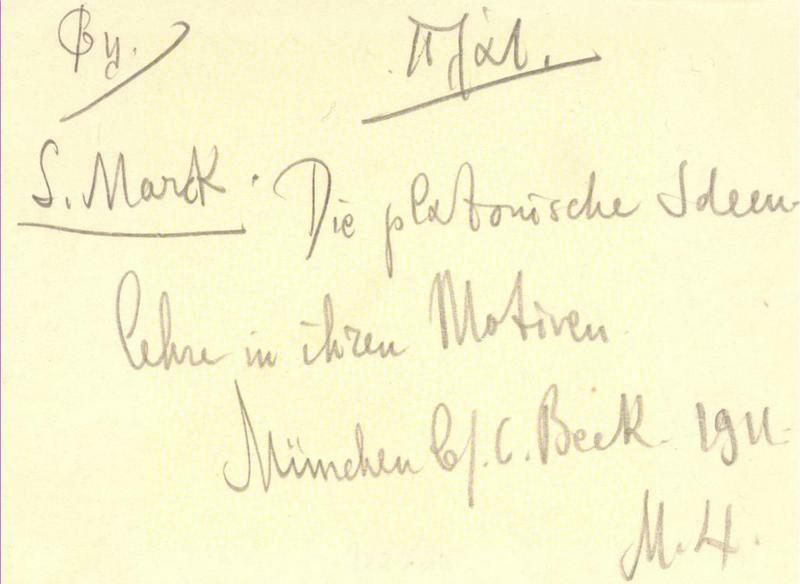 S. Marck. Die platonische Ideen-
lehre in ihren Motiven
München C. Beck 1911.
M. 4.